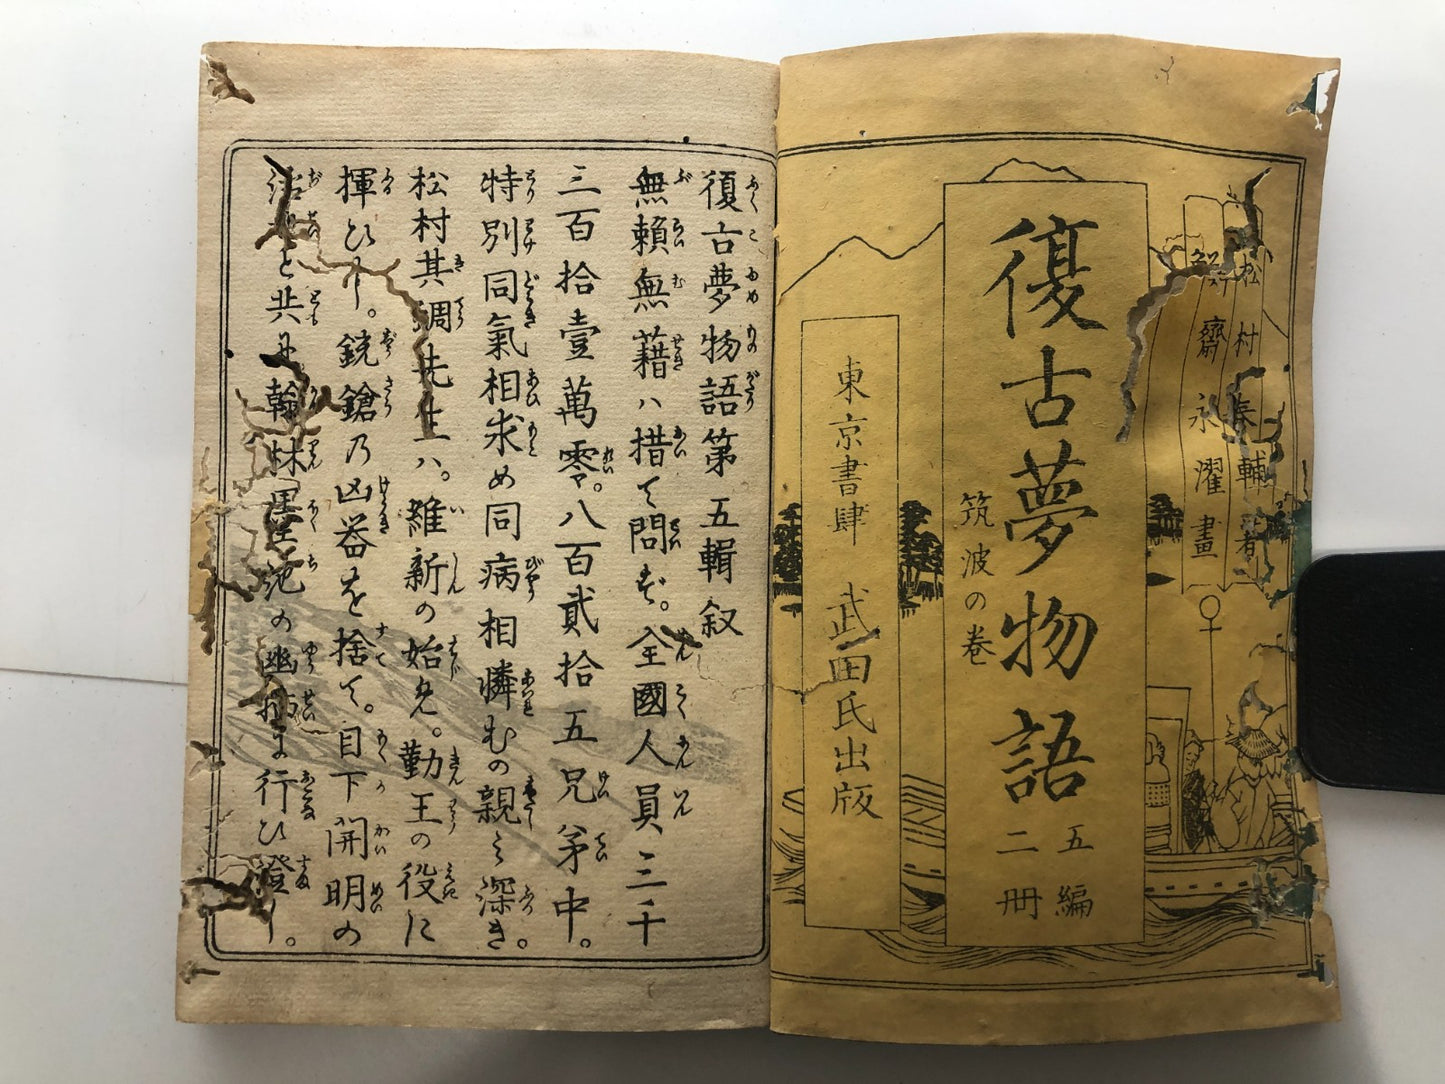 松村春輔著
鮮齋永濯畫
復古夢物語
五編
二冊
筑波の卷
東京書肆 武田氏出版
復古夢物語第五輯叙
無頼無藉ハ措て問ず。全國人員三千
三百拾壹萬零。八百貳拾五兄弟中。
特別同氣相求め同病相憐むの親み深き。
松村其調先生ハ。維新の始免。勤王の役に
揮ひし。銃鎗乃凶器を捨て。目下開明の
治と共に翰林墨池の幽栖に行ひ澄し。